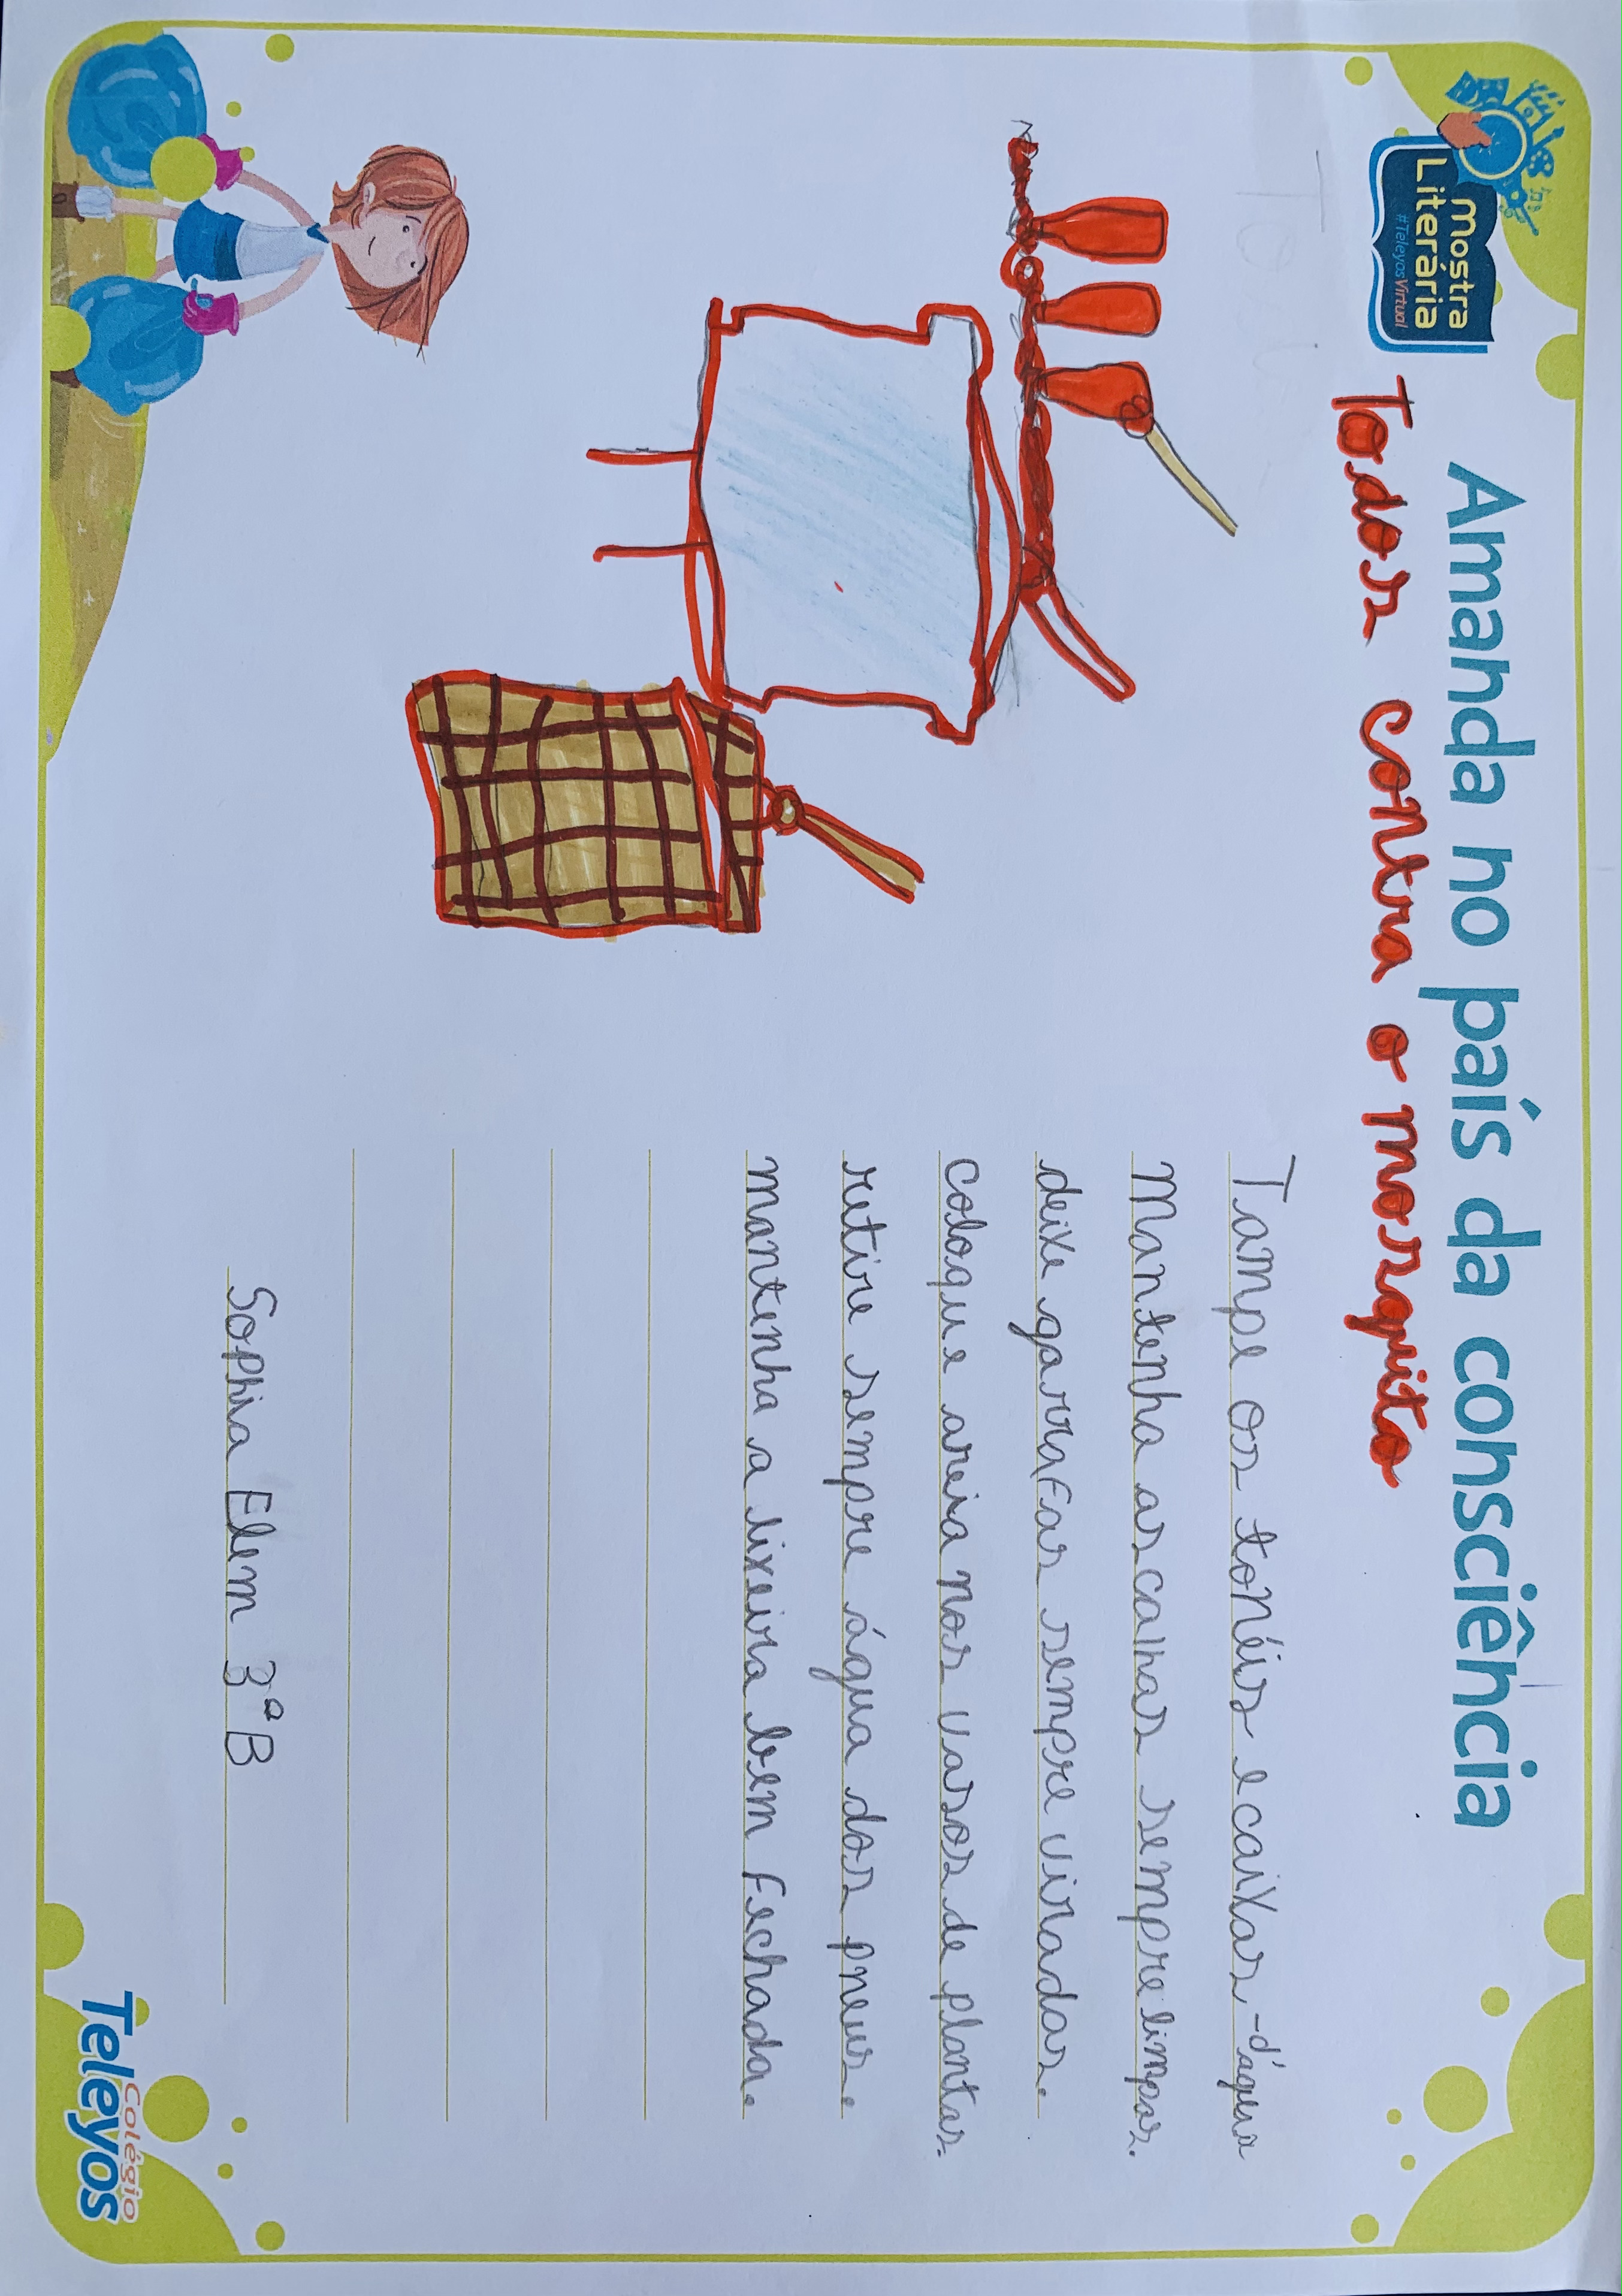 mostra
Literária
#TeleyosVirtual
Amanda no país da consciência
Todos contra o mosquito
Tampe os tonéis e caixas-d'água
Mantenha as calhas sempre limpas.
deixe garrafas sempre viradas.
coloque areia nos vasos de plantas.
retire sempre água dos pneus.
mantenha a lixeira bem fechada.
Sophia Elem 3º B
Colégio
Teleyos